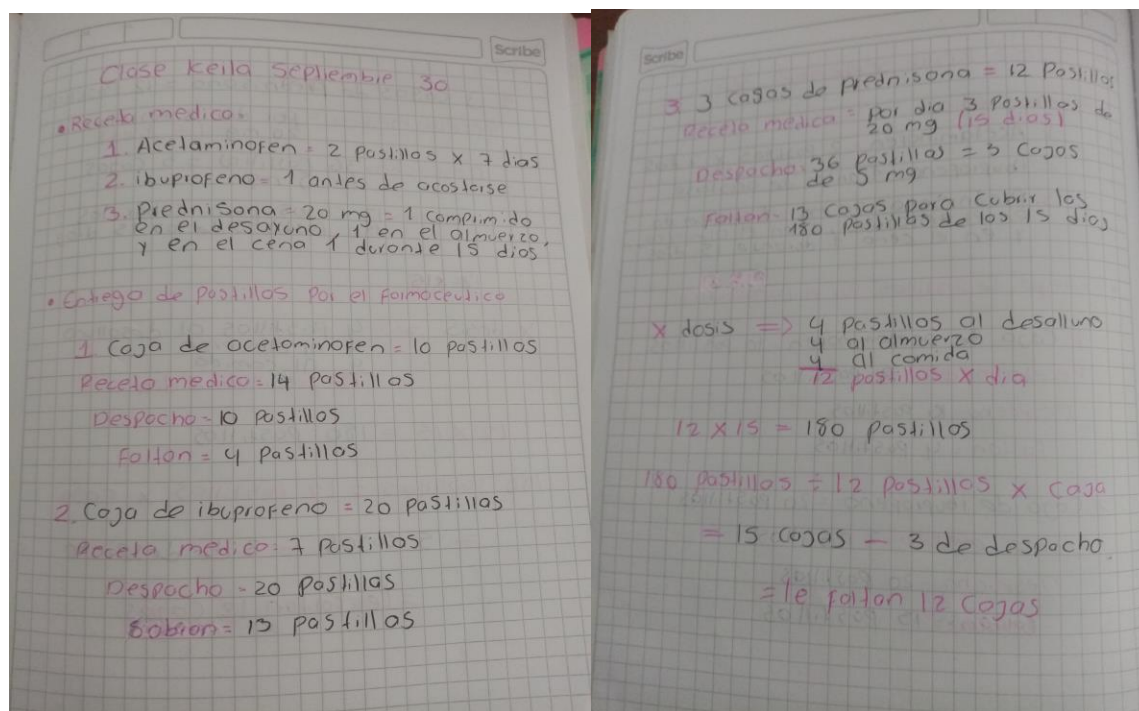 Scribe
Clase Keila Septiembre 30
• Receta medico:
1. Acetaminofen = 2 pastillas x 7 dias
2. ibuprofeno = 1 antes de acostarse
3. Prednisona = 20 mg = 1 comprimido
en el desayuno, 1 en el almuerzo,
y en el cena 1 durante 15 dias
• Entrega de pastillas por el farmaceutico
1 Caja de acetaminofen = 10 pastillas
Receta medico = 14 pastillas
Despacho = 10 pastillas
Faltan = 4 pastillas
2. Caja de ibuprofeno = 20 pastillas
Receta medico: 7 pastillas
Despacho = 20 pastillas
Sobran = 13 pastillas
Scribe
3 3 cagas de prednisona = 12 Pastillas
Receta medica = por dia 3 pastillas de
20 mg (15 dias)
Despacho: 36 pastillas = 3 cajas
de 5 mg
Faltan = 13 cajas para cubrir los
180 pastillas de los 15 dias
x dosis => 4 pastillas al desalluno
4 al almuerzo
4 al comida
12 pastillas x dia
12 x 15 = 180 pastillas
180 pastillas ÷ 12 pastillas x caja
= 15 cajas - 3 de despacho.
= le faltan 12 cajas